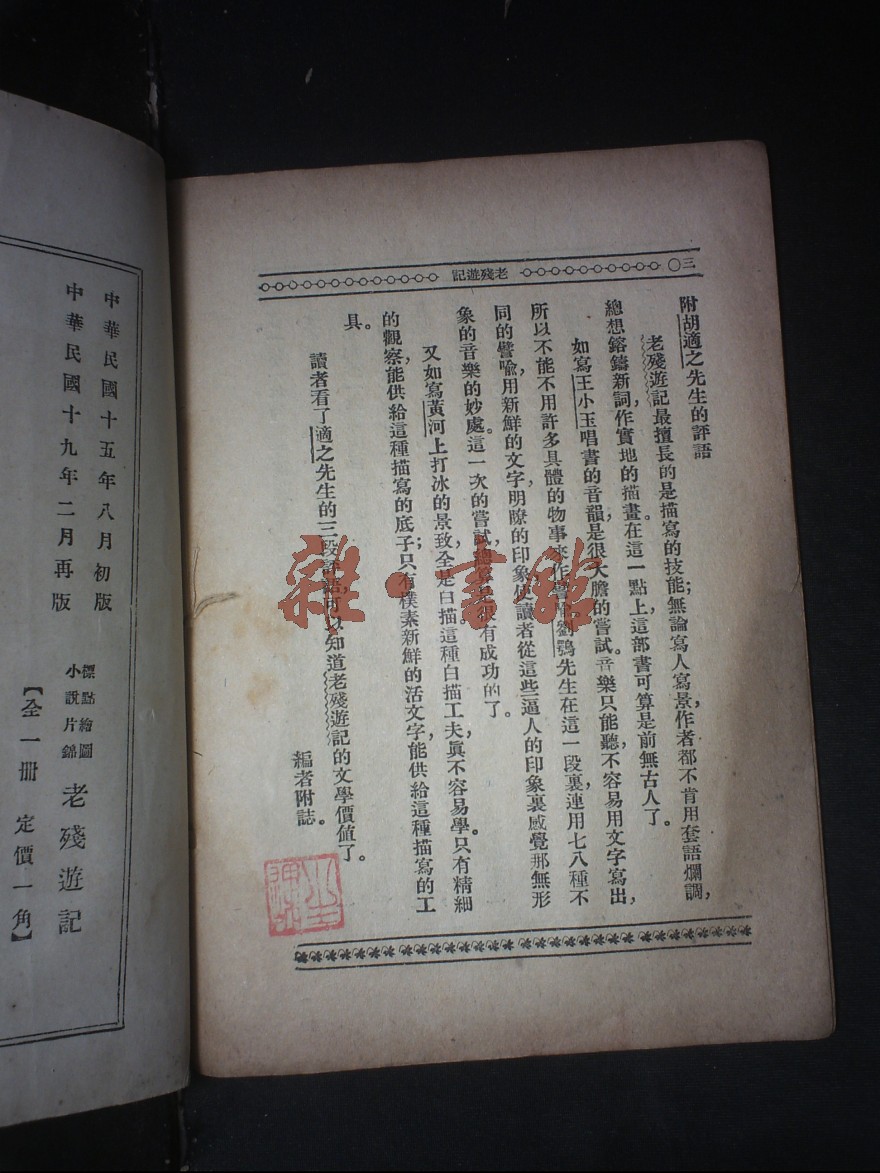 三〇
老殘遊記
附胡適之先生的評語
老殘遊記最擅長的是描寫的技能；無論寫人寫景，作者都不肯用套語爛調，
總想鎔鑄新詞，作實地的描畫。在這一點上，這部書可算是前無古人了。
如寫王小玉唱書的音韻，是很大膽的嘗試。音樂只能聽，不容易用文字寫出，
所以不能不用許多具體的物事來作譬喻。劉鶚先生在這一段裏，連用七八種不
同的譬喻，用新鮮的文字，明瞭的印象，使讀者從這些逼人的印象裏感覺那無形
象的音樂的妙處。這一次的嘗試，總算是很有成功的了。
又如寫黃河上打冰的景致，全是白描。這種白描工夫，眞不容易學。只有精細
的觀察，能供給這種描寫的底子；只有樸素新鮮的活文字，能供給這種描寫的工
具。
讀者看了適之先生的三段評語，可以知道老殘遊記的文學價值了。
編者附誌。
中華民國十五年八月初版
中華民國十九年二月再版
標點繪圖
小說片錦
老殘遊記
【全一冊 定價一角】
雜·書館